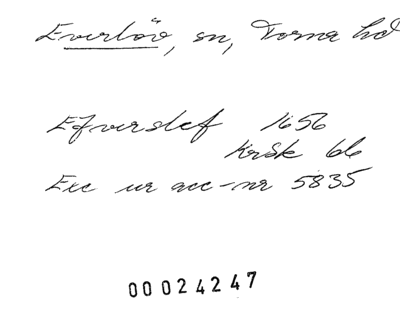 Everlöv, sn, Torna hd
Efverslef 1656
KrSk bb
Exc ur acc-nr 5835
00024247